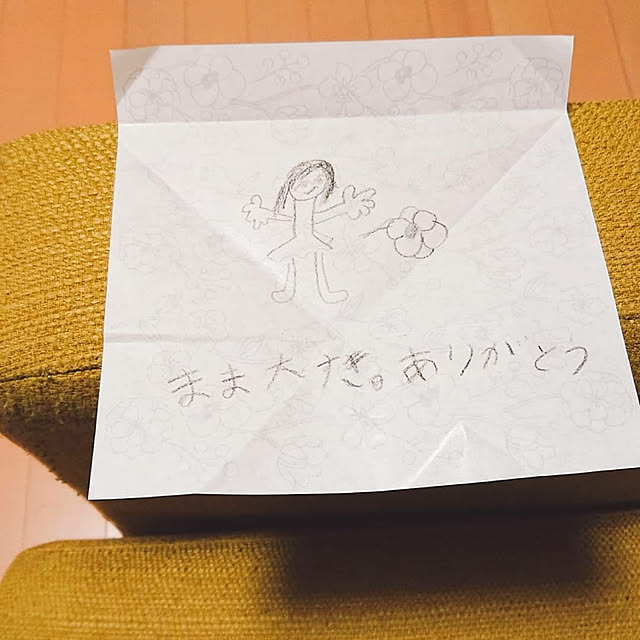 まま大すき。ありがとう